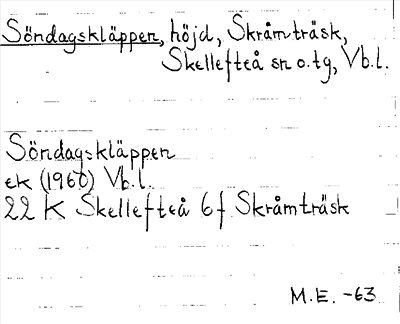 Söndagskläppen, höjd, Skråmträsk,
Skellefteå sn o. tg, Vb.l.
Söndagskläppen
ek (1960) Vb.l.
22 K Skellefteå 6 f Skråmträsk
M.E. -63